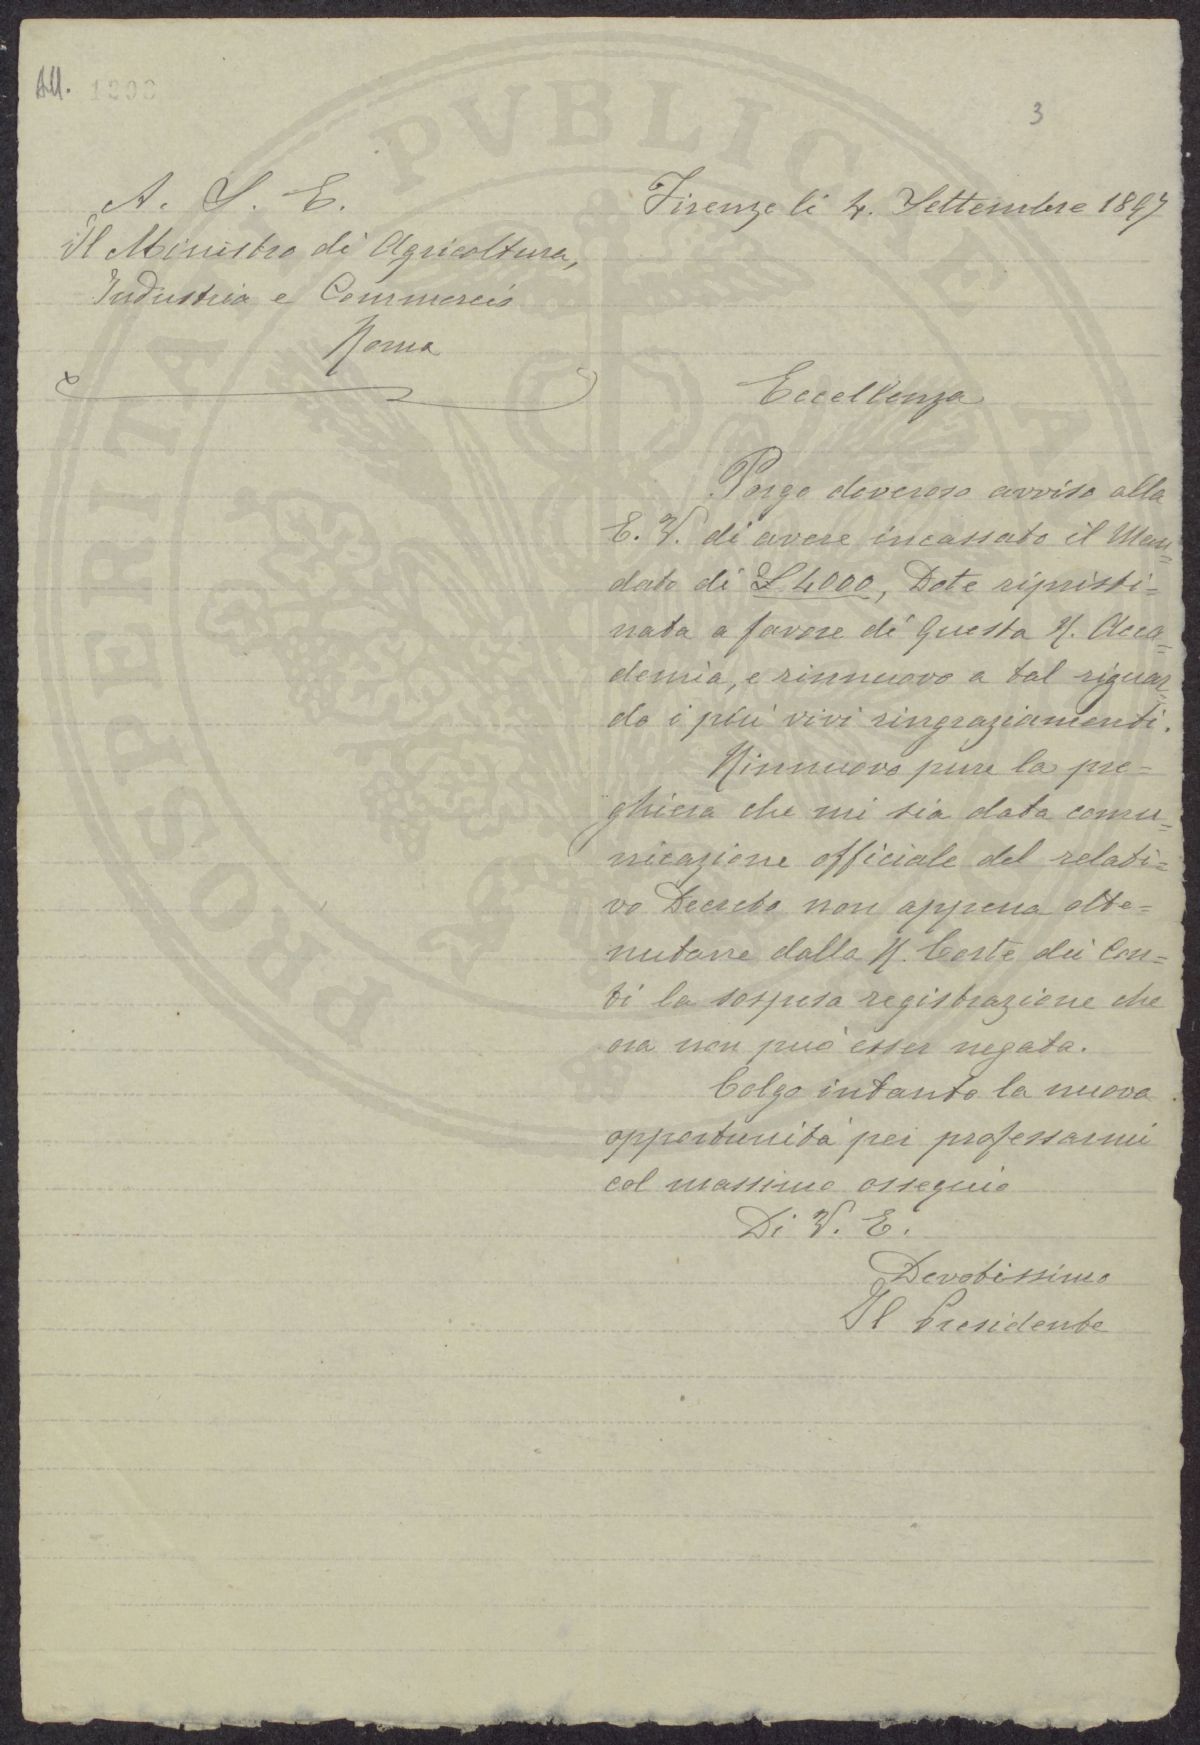 All. 1208
3
A. S. E.
Il Ministro di Agricoltura,
Industria e Commercio
Roma
Firenze li 4. Settembre 1897
Eccellenza
Porgo doveroso avviso alla
E. V. di avere incassato il Man=
dato di £ 4000, Dote ripristi=
nata a favore di Questa R. Acca=
demia, e rinnuovo a tal riguar=
do i più vivi ringraziamenti.
Rinnuovo pure la pre=
ghiera che mi sia data comu=
nicazione officiale del relati=
vo Decreto non appena otte=
nutane dalla R. Corte dei Con=
ti la sospesa registrazione che
ora non può esser negata.
Colgo intanto la nuova
opportunità per professarmi
col massimo ossequio
Di V. E.
Devotissimo
Il Presidente
PROSPERITA PVBLICAE